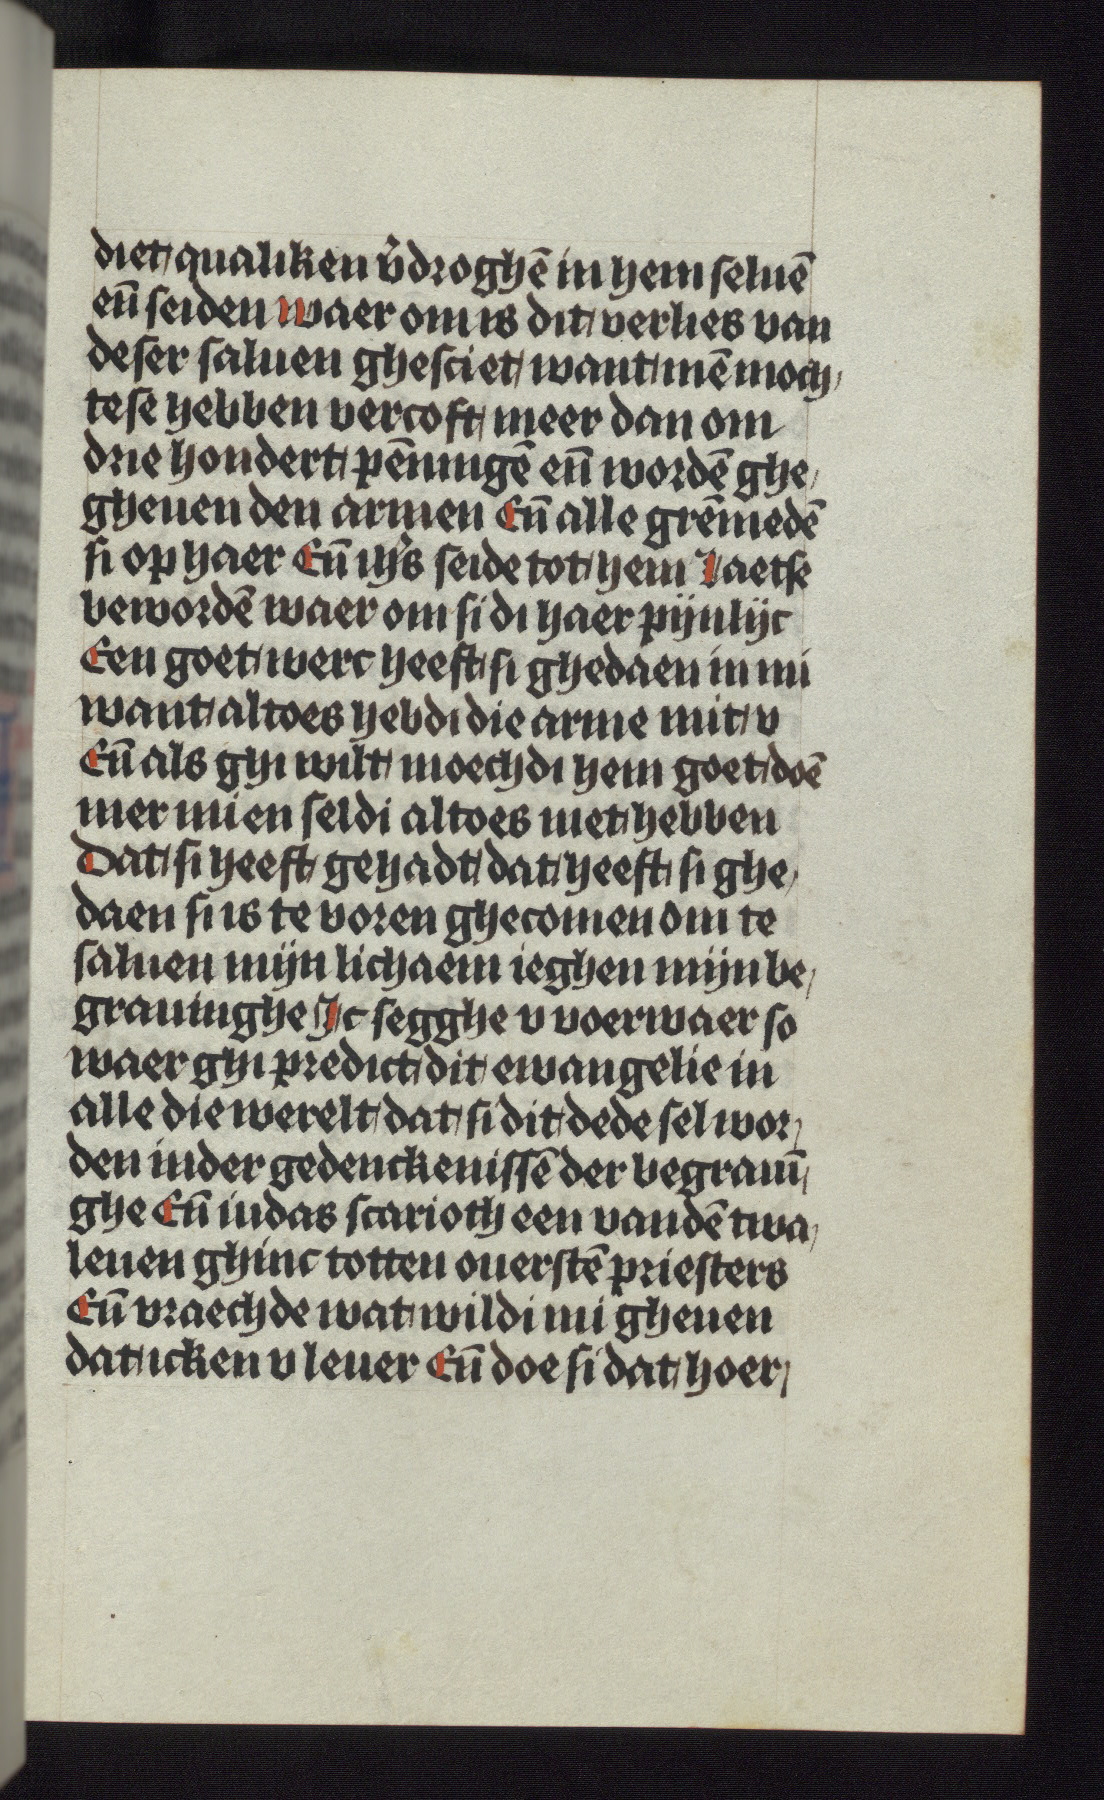 diet qualiken v̄droghē in hem seluē
en̄ seiden waer om is dit verlies van
deser saluen ghesciet want mē moch
tese hebben vercoft meer dan om
drie hondert pēningē en̄ wordē ghe
gheuen den armen En̄ alle grēmedē
si op haer En̄ ih̄s seide tot hem Laetse
bewordē waer om sidi haer pijnlijc
Een goet werc heeft si ghedaen in mi
want altoes hebdi die arme mit v
En̄ als ghi wilt moechdi hem goet doē
mer mi en seldi altoes niet hebben
Dat si heeft gehadt dat heeft si ghe
daen si is te voren ghecomen om te
saluen mijn lichaem ieghen mijn be
grauinghe Jc segghe v voerwaer so
waer ghi predict dit ewangelie in
alle die werelt dat si dit dede sel wor
den in der gedenckenissē der begrauī
ghe En̄ iudas scarioth een van dē twa
leuen ghinc totten ouerstē priesters
En̄ vraechde wat wildi mi gheuen
dat icken v leuer En̄ doe si dat hoer